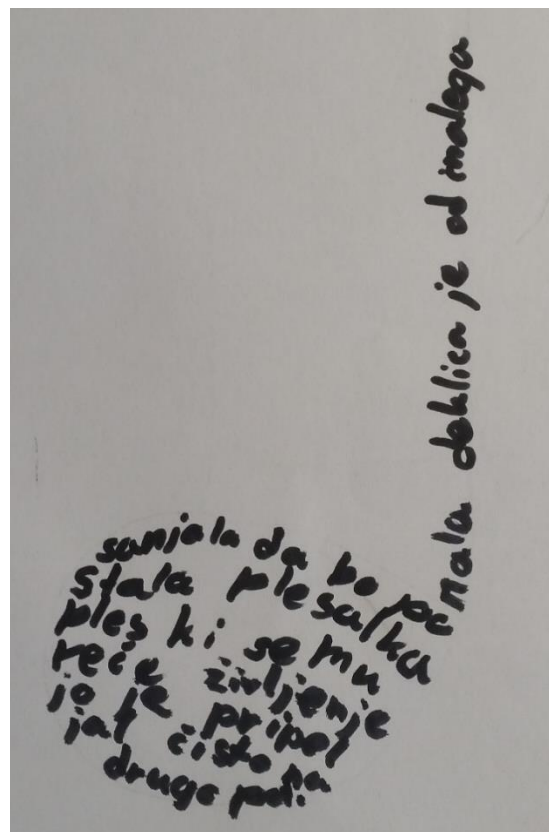 mala deklica je od malega
sanjala da bo po
stala plesalka
ples ki se mu
reče življenje
jo je pripel
jal čisto na
drugo pot.